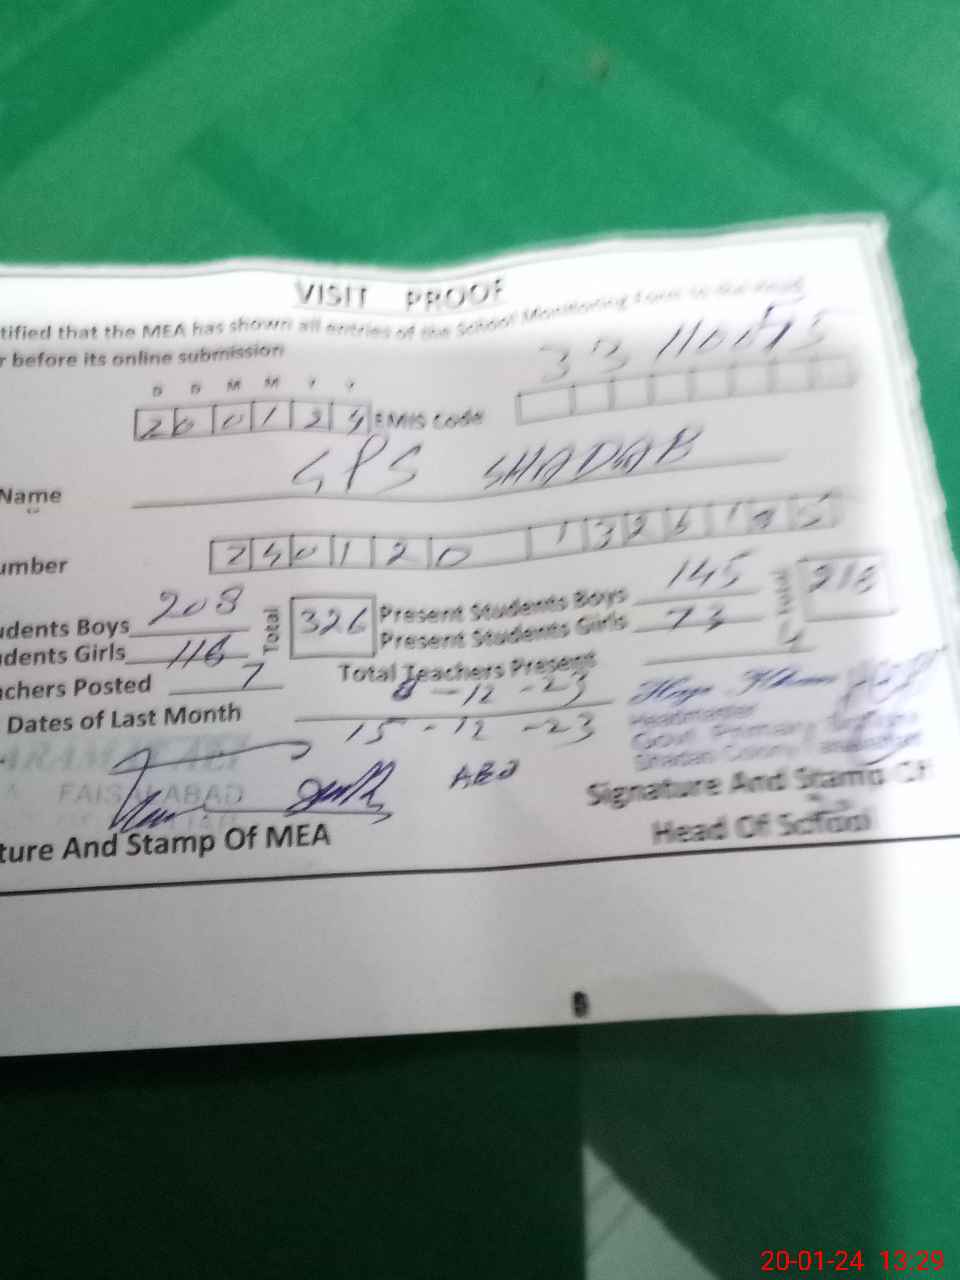 VISIT PROOF
tified that the MEA has shown all entries of the School Monitoring Form to the Head
r before its online submission
D D M M Y Y
200124 EMIS Code
GPS SHADAB
Name
umber 240120 1326
udents Boys 208 Total 326 Present Students Boys 145
udents Girls 116 Present Students Girls 73 Total 218
achers Posted 7 Total Teachers Present 4
Dates of Last Month 8-12-23
15-12-23
Headmaster
Govt Primary
FAISALABAD
ture And Stamp Of MEA
Signature And Stamp Of
Head Of School
20-01-24 13:29